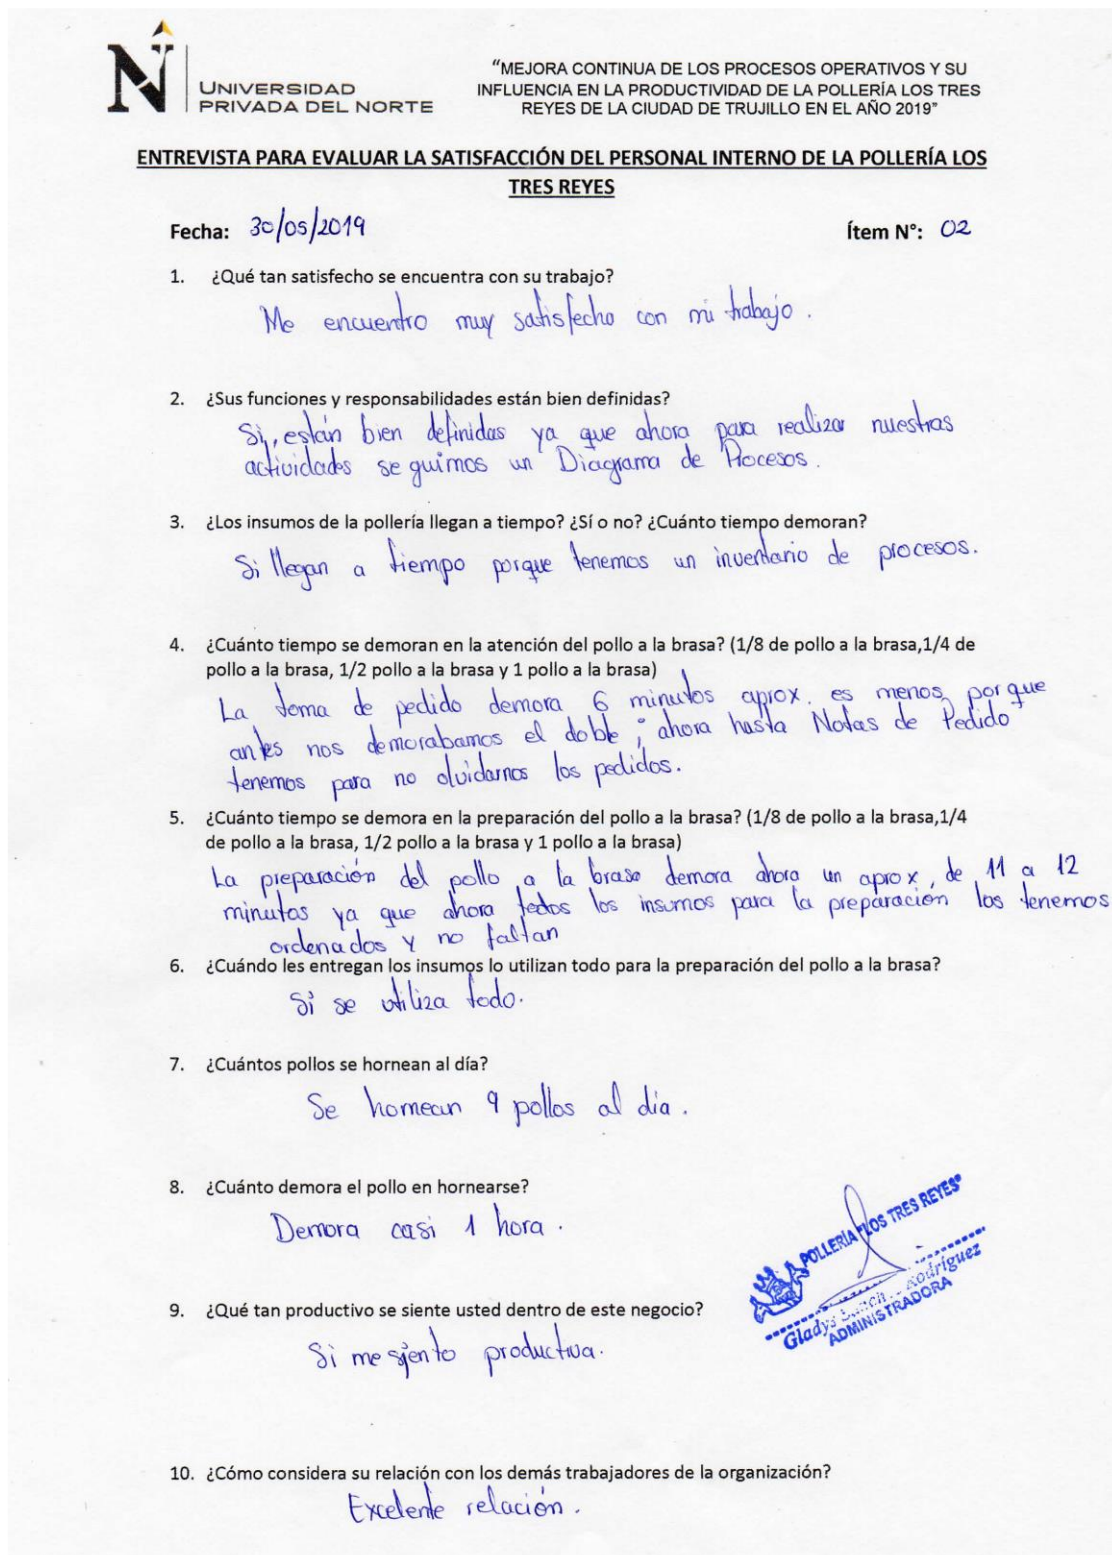 N UNIVERSIDAD
PRIVADA DEL NORTE
"MEJORA CONTINUA DE LOS PROCESOS OPERATIVOS Y SU
INFLUENCIA EN LA PRODUCTIVIDAD DE LA POLLERÍA LOS TRES
REYES DE LA CIUDAD DE TRUJILLO EN EL AÑO 2019"
ENTREVISTA PARA EVALUAR LA SATISFACCIÓN DEL PERSONAL INTERNO DE LA POLLERÍA LOS
TRES REYES
Fecha: 30/05/2019 Ítem N°: 02
1. ¿Qué tan satisfecho se encuentra con su trabajo?
Me encuentro muy satisfecho con mi trabajo.
2. ¿Sus funciones y responsabilidades están bien definidas?
Si, están bien definidas ya que ahora para realizar nuestras
actividades seguimos un Diagrama de Procesos.
3. ¿Los insumos de la pollería llegan a tiempo? ¿Sí o no? ¿Cuánto tiempo demoran?
Si llegan a tiempo porque tenemos un inventario de procesos.
4. ¿Cuánto tiempo se demoran en la atención del pollo a la brasa? (1/8 de pollo a la brasa,1/4 de
pollo a la brasa, 1/2 pollo a la brasa y 1 pollo a la brasa)
La toma de pedido demora 6 minutos aprox. es menos, porque
antes nos demorabamos el doble; ahora hasta Notas de Pedido
tenemos para no olvidarnos los pedidos.
5. ¿Cuánto tiempo se demora en la preparación del pollo a la brasa? (1/8 de pollo a la brasa,1/4
de pollo a la brasa, 1/2 pollo a la brasa y 1 pollo a la brasa)
La preparación del pollo a la brasa demora ahora un aprox, de 11 a 12
minutos ya que ahora todos los insumos para la preparación los tenemos
ordenados y no faltan
6. ¿Cuándo les entregan los insumos lo utilizan todo para la preparación del pollo a la brasa?
Si se utiliza todo.
7. ¿Cuántos pollos se hornean al día?
Se hornean 9 pollos al día.
8. ¿Cuánto demora el pollo en hornearse?
Demora casi 1 hora.
POLLERÍA "LOS TRES REYES"
Gladys Rodríguez
ADMINISTRADORA
9. ¿Qué tan productivo se siente usted dentro de este negocio?
Si me siento productiva.
10. ¿Cómo considera su relación con los demás trabajadores de la organización?
Excelente relación.